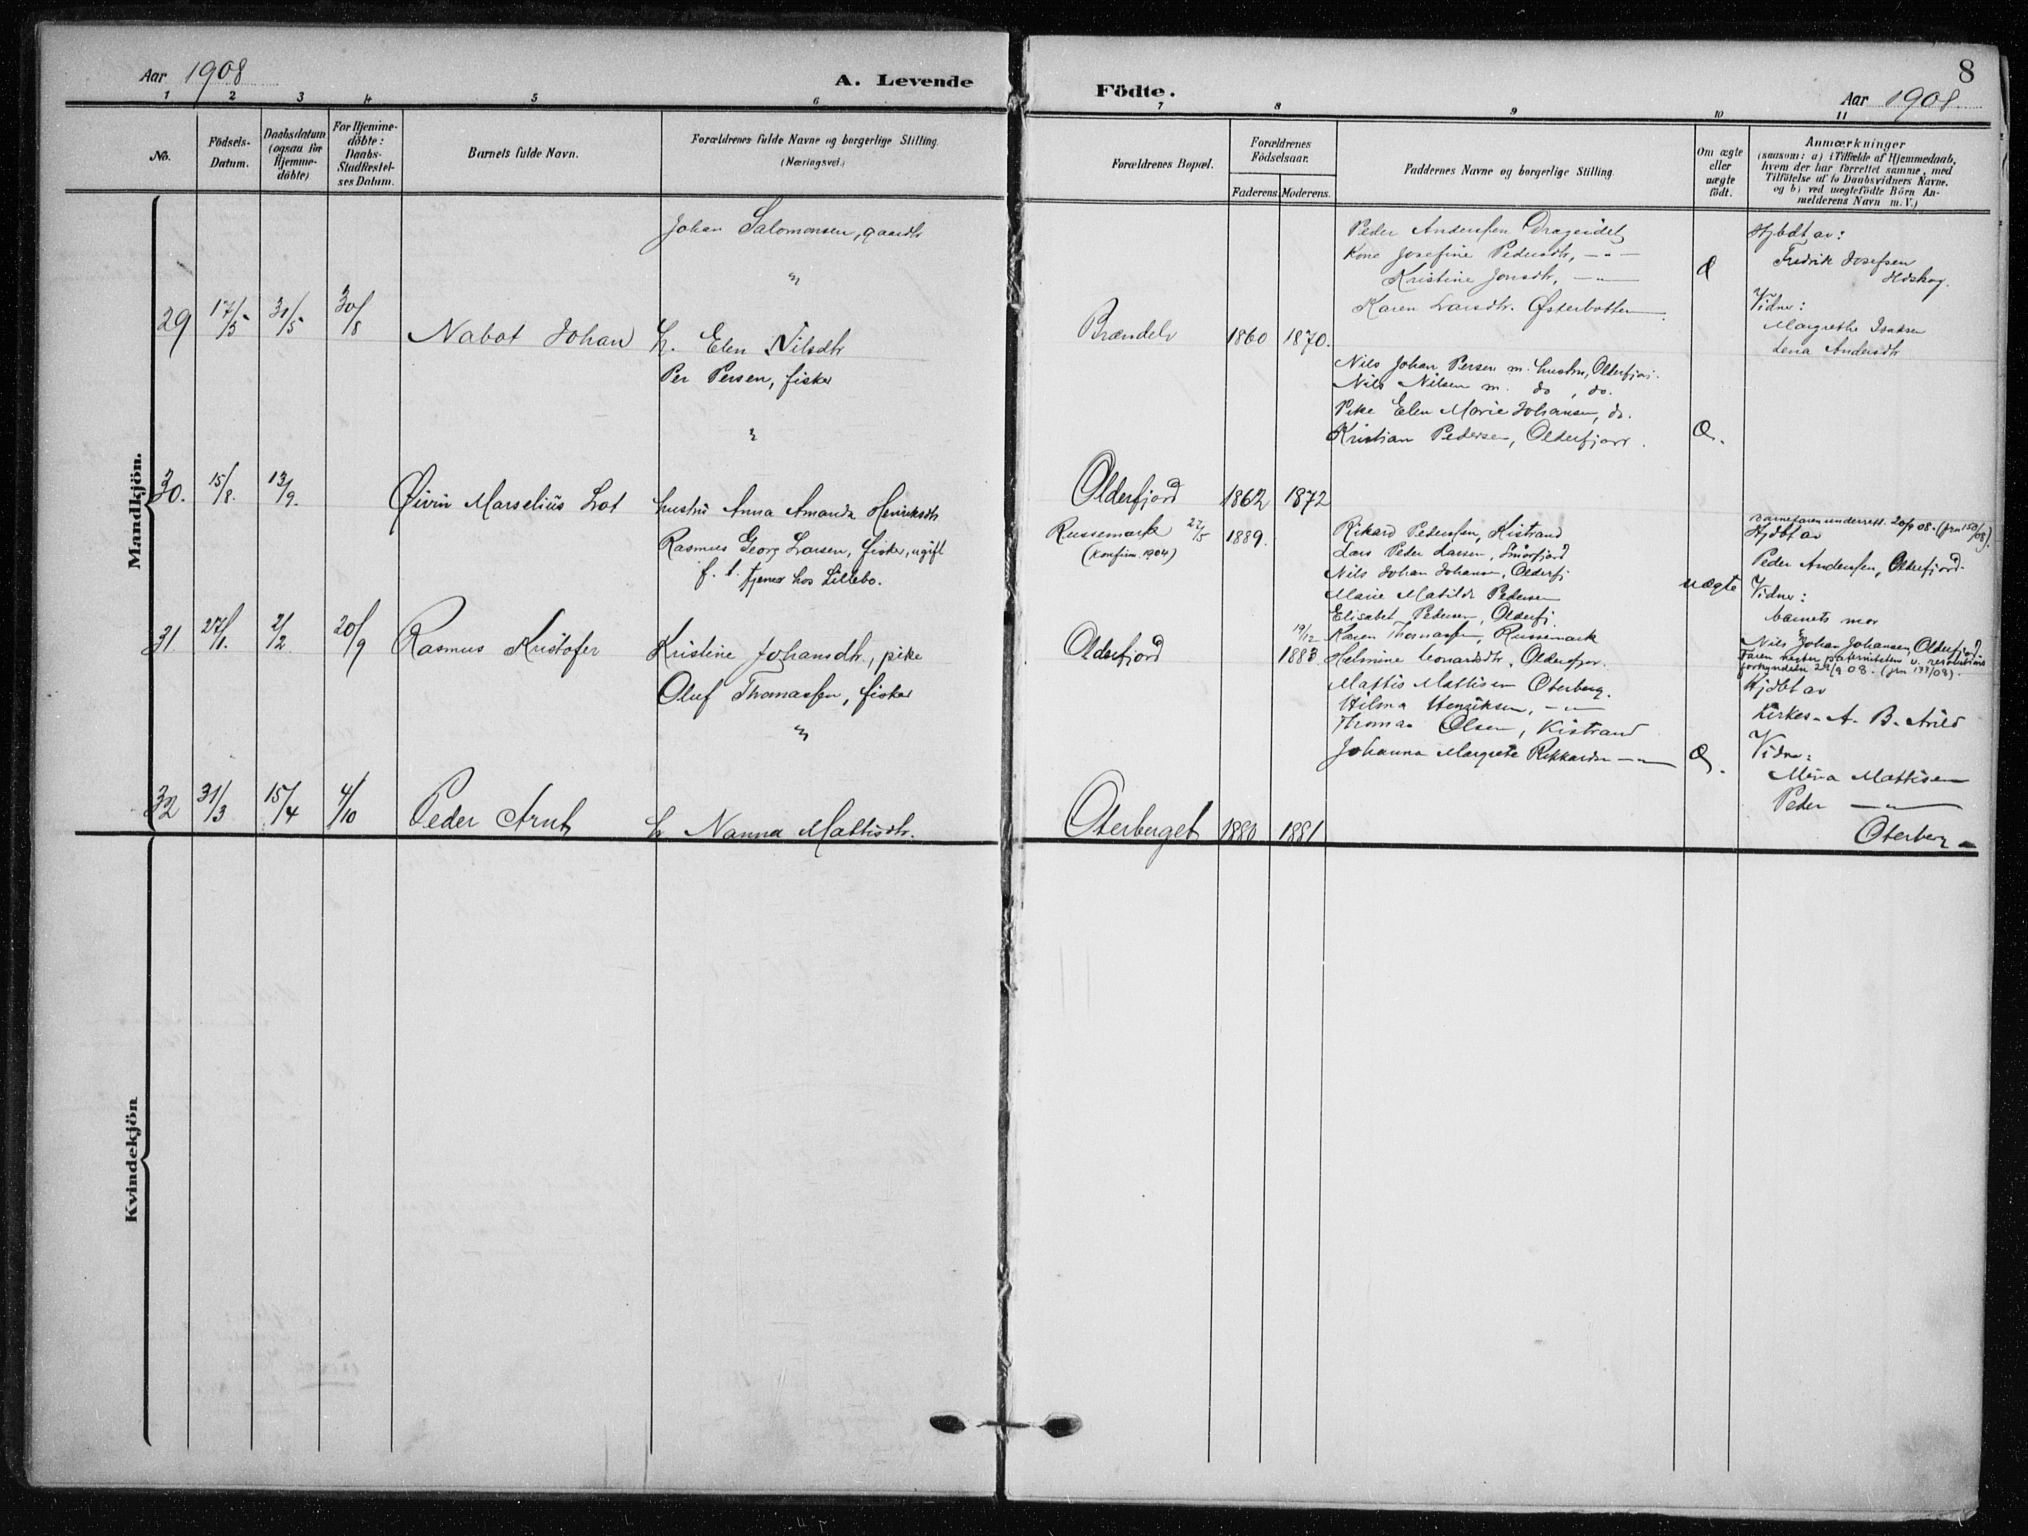 Aar 1908
A. Levende
Födte.
Aar 1908.
8
1 2 3 4 5 6 7 8 9 10 11
No.
Födsels-
Datum.
Daabsdatum
(ogsaa for
Hjemme-
döbte)
For Hjemme-
döbte:
Daabs-
Stadfæstel-
ses Datum.
Barnets fulde Navn.
Forældrenes fulde Navne og borgerlige Stilling.
(Næringsvei.)
Forældrenes Bopæl.
Forældrenes
Födselsaar.
Faderens.
Moderens.
Faddernes Navne og borgerlige Stilling.
Om ægte
eller
uægte
födt.
Anmærkninger
(saasom: a) i Tilfælde af Hjemmedaab,
hvem der har forrettet samme, med
Tilföielse af to Daabsvidners Navne,
og b) ved uægtefödte Börn An-
melderens Navn m. V.)
Mandkjön.
Johan Salomonsen, gaardbr
"
29 17/5 31/5 30/8 Nabot Johan H. Elen Nilsdtr
Brændelv 1860 1870.
Peder Andersen
Kone Josefine Pedersdtr, -"-
Kristine Jonsdtr, -"-
Karen Larsdtr. Østerbotten
Æ
Hjbdt av:
Fredrik Josefsen
Vidner:
Margrethe Isaksen
Lena Andersdtr
Per Persen, fisker
"
30. 15/8. 13/9. Øivin Marselius Lot hustru Anna Amanda Henriksdtr
Olderfjord 1862 1872
Nils Johan Persen m. hustru, Olderfjor.
Nils Nilsen m. do, do.
Pike Elen Marie Johansen, do.
Kristian Pedersen, Olderfjord.
Æ.
Rasmus Georg Larsen, fisker, ugift
f. t. tjener hos Lillebo.
31 27/1. 2/2 20/9 Rasmus Kristofer Kristine Johansdtr, pike
Russemark 27/5 1889.
(Konfirm. 1904)
Olderfjord 19/12 1883
Rikard Pedersen, Kistrand
Lars Peder Larsen, Smørfjord
Nils Johan Johansen, Olderfj
Marie Matilde Pedersen
Elisabet Pedersen, Olderfj.
Karen Thomassen, Russemark
Helmine Leonardsdtr, Olderfjor.
uægte
Barnefaren underrett. 20/9 08. (jrn 150/08).
Hjdbt av
Peder Andersen, Olderfjord.
Vidner:
barnets mor
Nils Johan Johansen, Olderfjord
Faren negter paterniteten v. resolutions
forkyndelse 29/9 08. (jrn 177/08).
Oluf Thomassen, fisker
"
32 31/3 15/4 4/10 Peder Arnt H. Nanna Mattisdtr.
Oterberget 1880 1881
Mattis Mattisen Oterberg.
Hilma Henriksen, -"-
Thomas Olsen, Kistrand
Johanna Margrete Rikkardsen -"-
Æ.
Hjdbt av
Kirkes. A. B. Arild
Vidner:
Mina Mattisen
Peder -"-
Oterberg
Kvindekjön